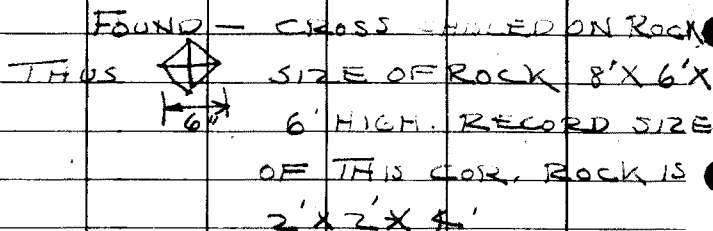 FOUND - CROSS CHISLED ON ROCK
THUS SIZE OF ROCK 8'X 6'X
6" 6' HIGH. RECORD SIZE
OF THIS COR. ROCK IS
2'X 2'X 4'